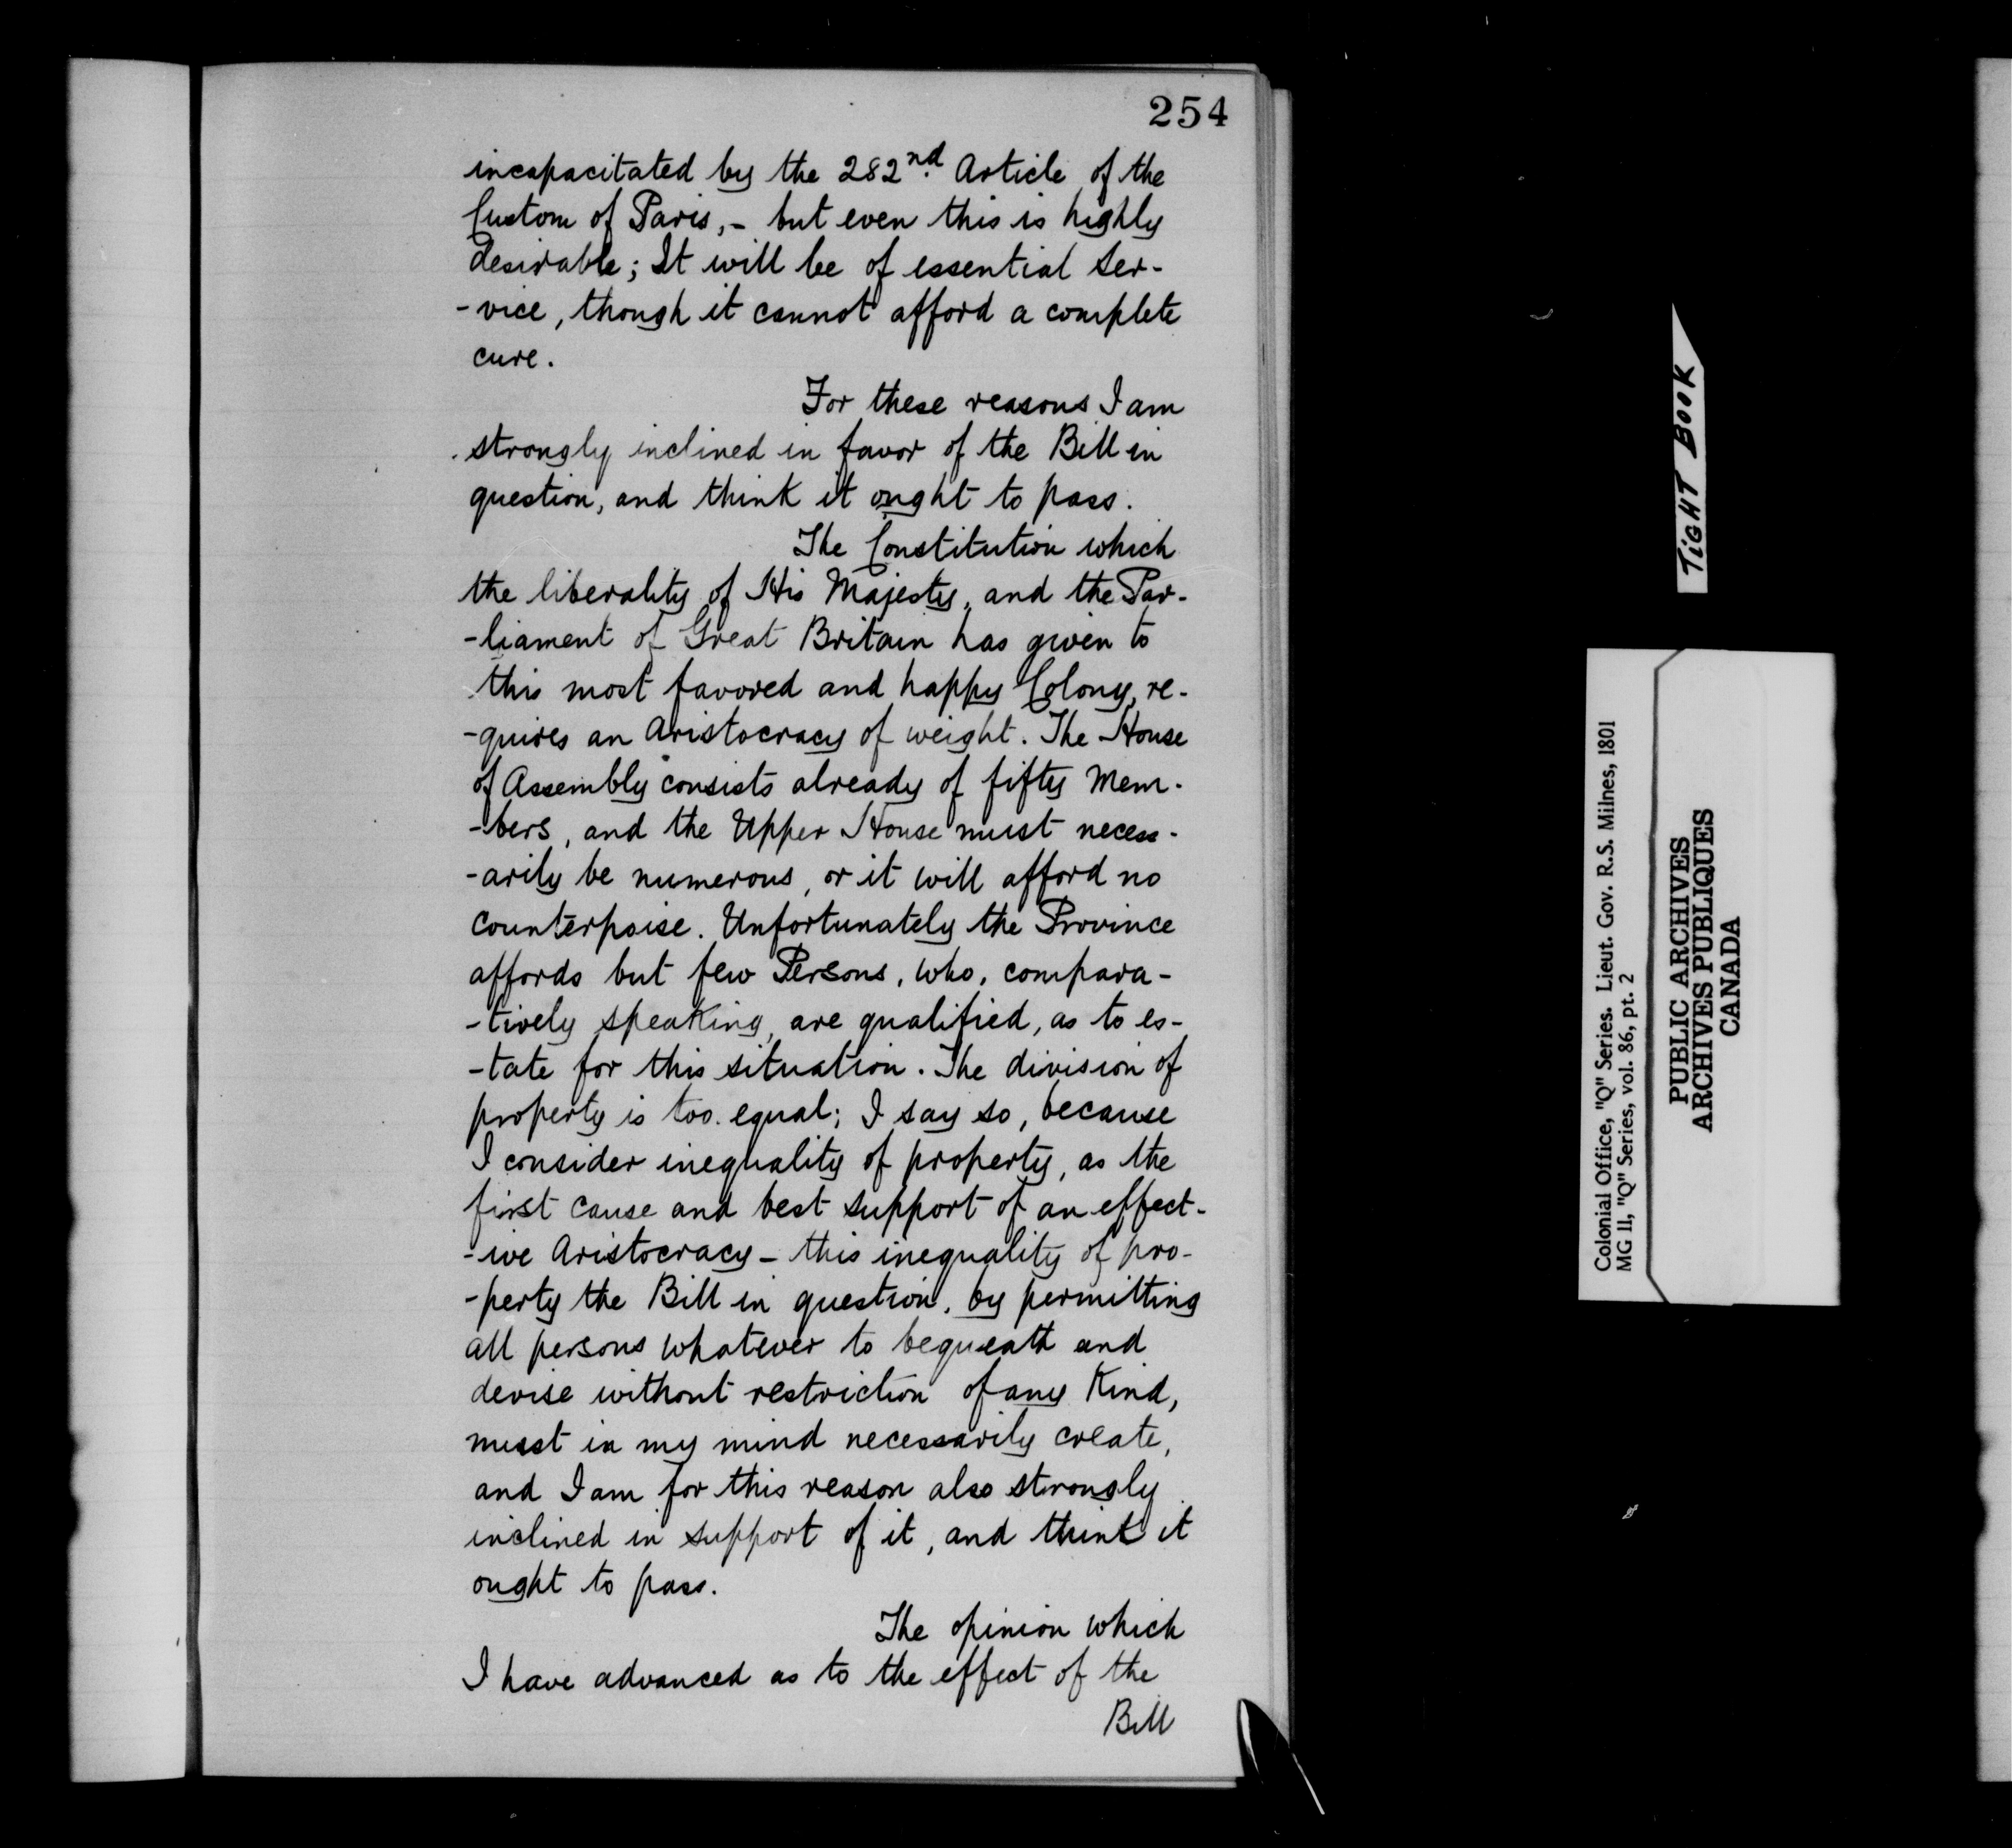 254
incapacitated by the 282nd. Article of the
Custom of Paris, - but even this is highly
desirable; It will be of essential ser-
-vice, though it cannot afford a complete
cure.
For these reasons I am
strongly inclined in favor of the Bill in
question, and think it ought to pass.
The Constitution which
the liberality of His Majesty, and the Par-
-liament of Great Britain has given to
this most favored and happy Colony, re-
-quires an Aristocracy of weight. The House
of Assembly consists already of fifty Mem-
-bers, and the Upper House must necess-
-arily be numerous, or it will afford no
counterpoise. Unfortunately the Province
affords but few Persons, who, compara-
-tively speaking, are qualified, as to es-
-tate for this situation. The division of
property is too equal; I say so, because
I consider inequality of property, as the
first cause and best support of an effect-
-ive Aristocracy - this inequality of pro-
-perty the Bill in question, by permitting
all persons whatever to bequeath and
devise without restriction of any Kind,
must in my mind necessarily create,
and I am for this reason also strongly
inclined in support of it, and think it
ought to pass.
The opinion which
I have advanced as to the effect of the
Bill
TIGHT BOOK
Colonial Office, "Q" Series. Lieut. Gov. R.S. Milnes, 1801
MG 11, "Q" Series, vol. 86, pt. 2
PUBLIC ARCHIVES
ARCHIVES PUBLIQUES
CANADA